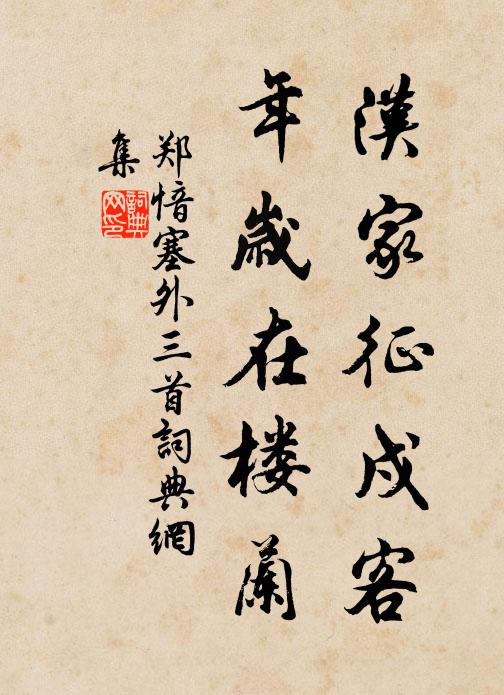 漢家征戍客
年歲在楼蘭
郑愔塞外三首詞典網
集
詞典网印